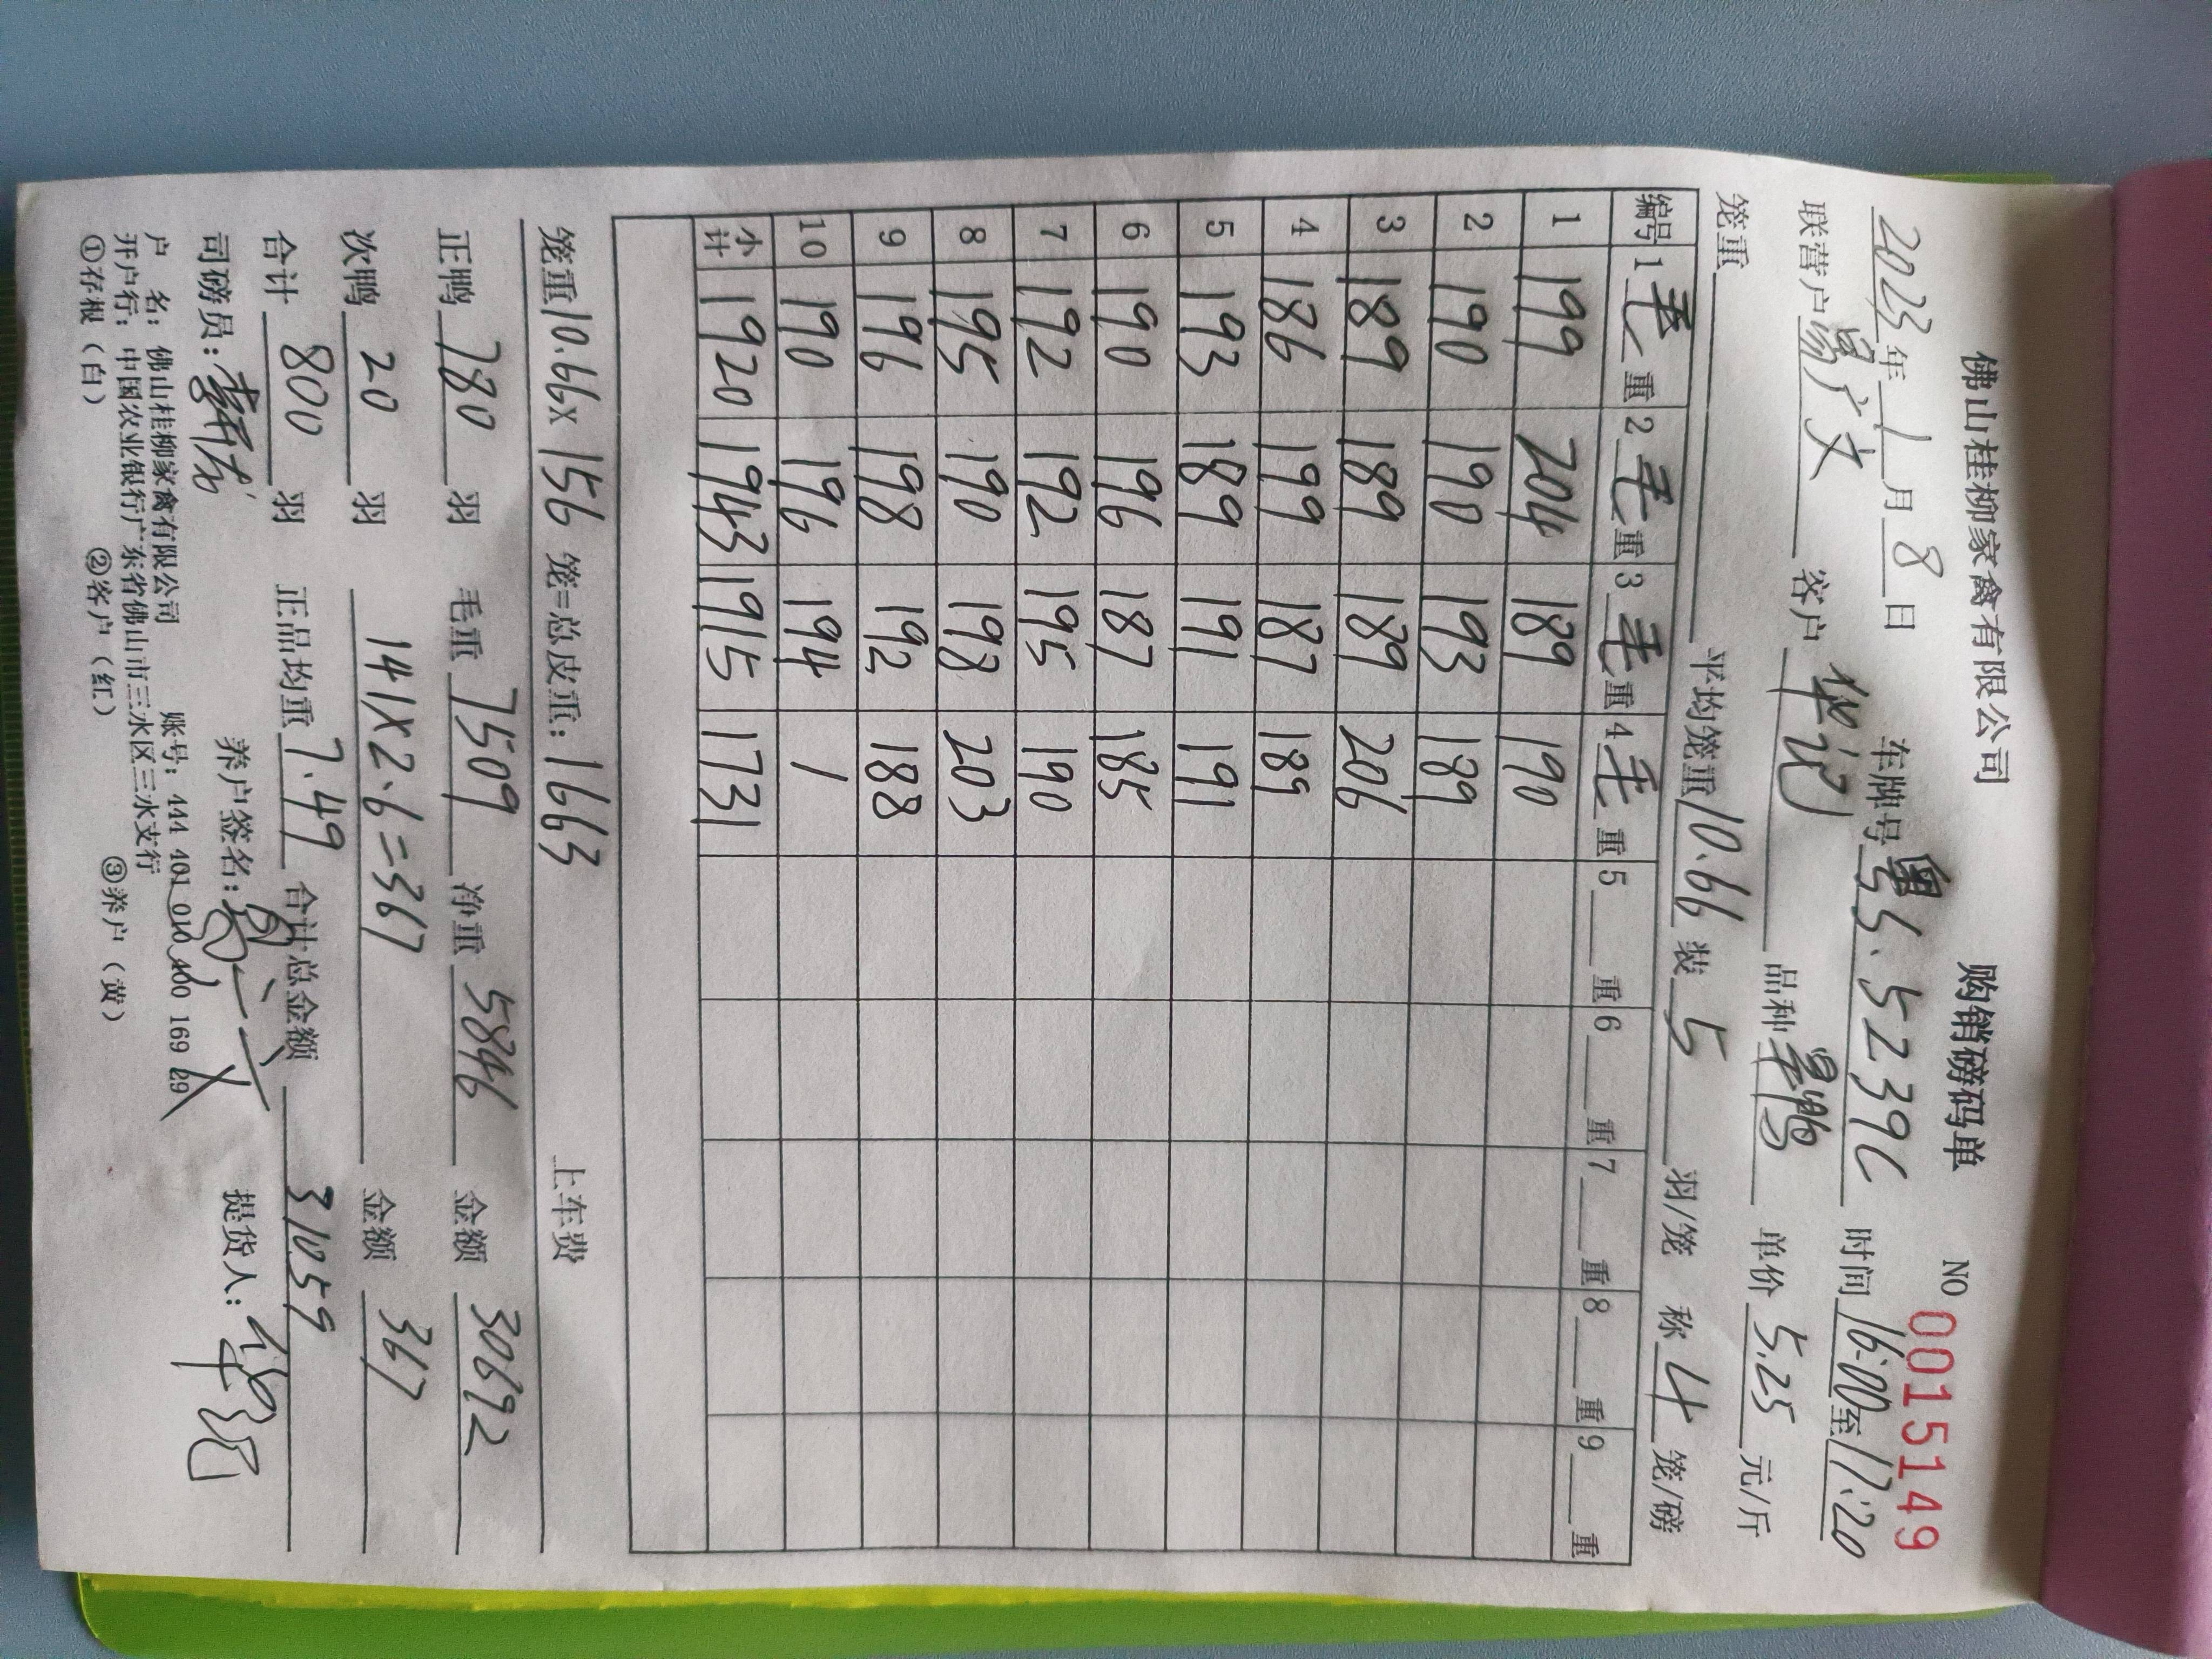 佛山桂柳家禽有限公司 购销磅码单 NO 0015149
2023年1月8日 车牌号粤S.5239C 时间16:00至17:20
联营户 广文 客户华记 品种 鸭 单价5.25元/斤
笼重 平均笼重10.66装5羽/笼 称4笼/磅
编号 1毛重 2毛重 3毛重 4毛重 5重 6重 7重 8重 9重
1 199 204 189 190
2 190 190 193 189
3 189 189 189 206
4 186 199 187 189
5 193 189 191 191
6 190 196 187 185
7 192 192 195 190
8 195 190 198 203
9 196 198 192 188
10 190 196 194 /
小计 1920 1943 1915 1731
笼重10.66x156笼=总皮重:1663 上车费
正鸭780羽 毛重7509 净重5846 金额30692
次鸭20羽 141x2.6=367 金额367
合计800羽 正品均重7.49 合计总金额31059
司磅员: 养户签名: 提货人:华记
户 名:佛山桂柳家禽有限公司 账号:444 401 010 400 169 29
开户行:中国农业银行广东省佛山市三水区三水支行
①存根(白) ②客户(红) ③养户(黄)